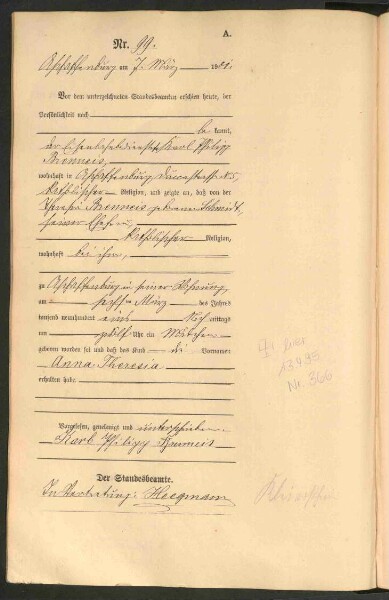 A.
Nr. 99.
Aschaffenburg am 7. März 1901.
Vor dem unterzeichneten Standesbeamten erschien heute, der
Persönlichkeit nach
be kannt,
der Eisenbahndienst Karl Philipp
Bremneis,
wohnhaft in Aschaffenburg
katholischer Religion, und zeigte an, daß von der
Theresia Bremneis geborene Schmidt,
seiner Ehefrau
katholischer Religion,
wohnhaft bei ihm,
zu Aschaffenburg in seiner Wohnung,
am sechsten März des Jahres
tausend neunhundert eins Nachmittags
um zwölf Uhr ein Mädchen
geboren worden sei und daß das Kind die Vornamen
Anna Theresia
erhalten habe.
Vorgelesen, genehmigt und unterschrieben
Karl Philipp Bremneis
Der Standesbeamte.
In Vertretung:
1399
Nr. 366